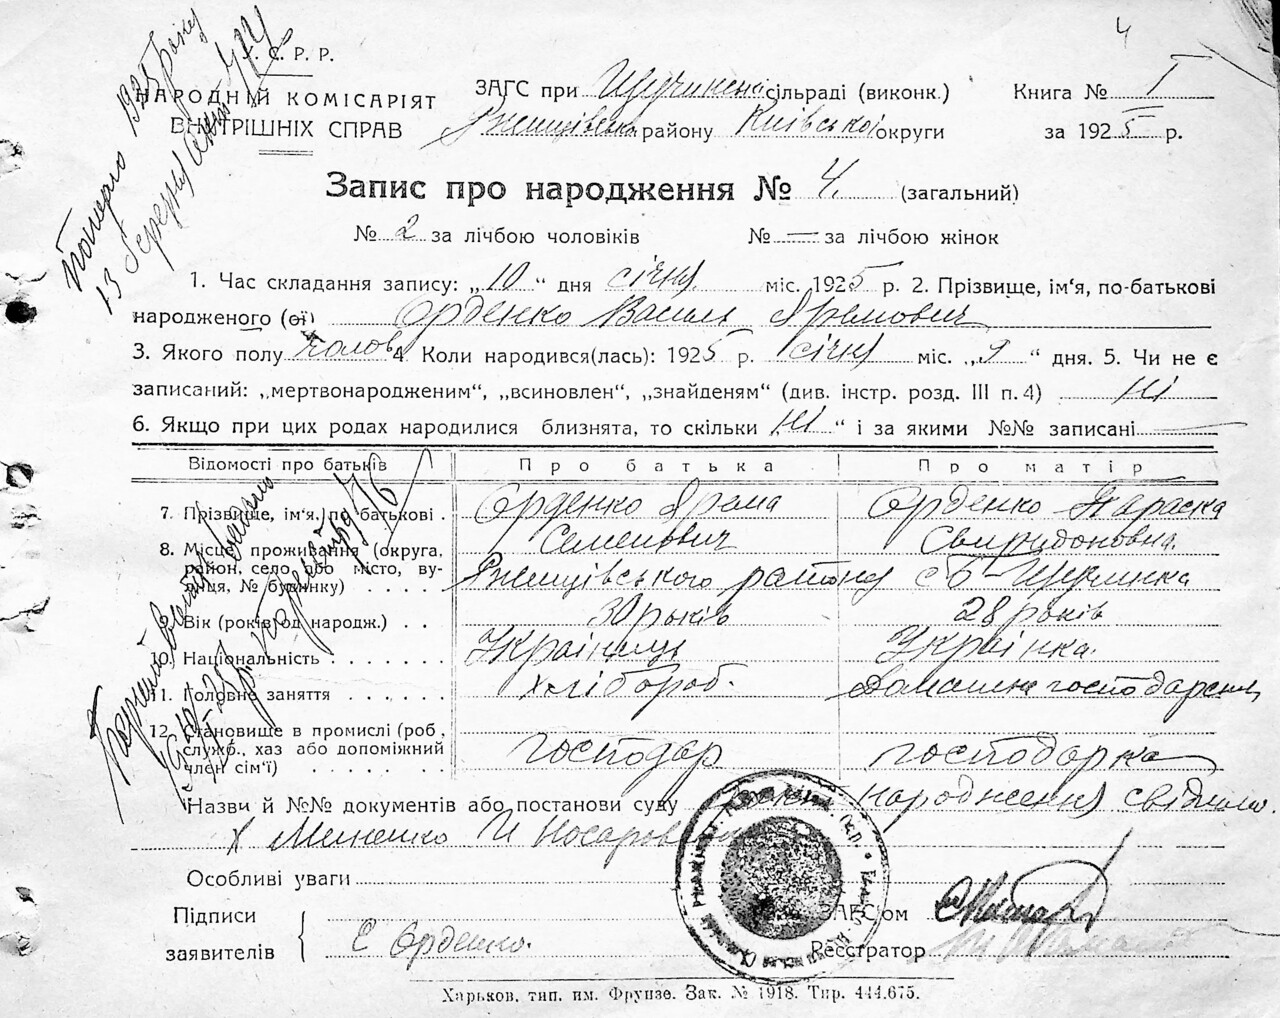 4
У. С. Р. Р.
НАРОДНІЙ КОМІСАРІЯТ
ВНУТРІШНІХ СПРАВ
ЗАГС при Щучинск сільраді (виконк.)
Ржищівськ району Київської округи
Книга № I
за 1925 р.
Запис про народження № 4. (загальний)
№ 2 за лічбою чоловіків № — за лічбою жінок
1. Час складання запису: „10“ дня січня міс. 1925 р. 2. Прізвище, ім'я, по-батькові
народженого (ої) Орденко Василь Яремович
3. Якого полу чолов 4. Коли народився(лась): 1925 р. січня міс. „9“ дня. 5. Чи не є
записаний: „мертвонародженим“, „всиновлен“, „знайденям“ (див. інстр. розд. III п. 4) ні
6. Якщо при цих родах народилися близнята, то скільки „ні“ і за якими №№ записані —
Відомості про батьків Про батька Про матір
7. Прізвище, ім'я, по-батькові . Орденко Ярема Семенович Орденко Параска Свиридоновна
8. Місце проживання (округа, район, село або місто, вулиця, № будинку) . . . . Ржищівського району с Б-Щучинка
9. Вік (років од народж.) . . 30 років 28 років
10. Національність . . . . . . Українець Українка
11. Головне заняття . . . . . . Хлібороб. Домашнє господарство
12. Становище в промислі (роб., служб., хаз або допоміжний член сім'ї) . . . . . . господар господарка
Назви й №№ документів або постанови суду народження свідки
Мененко И Носаров
Особливі уваги
Підписи
заявителів
С Орденко.
ЗАГС'ом
Реєстратор
Харьков, тип. им. Фрунзе. Зак. № 1918. Тир. 444.675.
13 березня